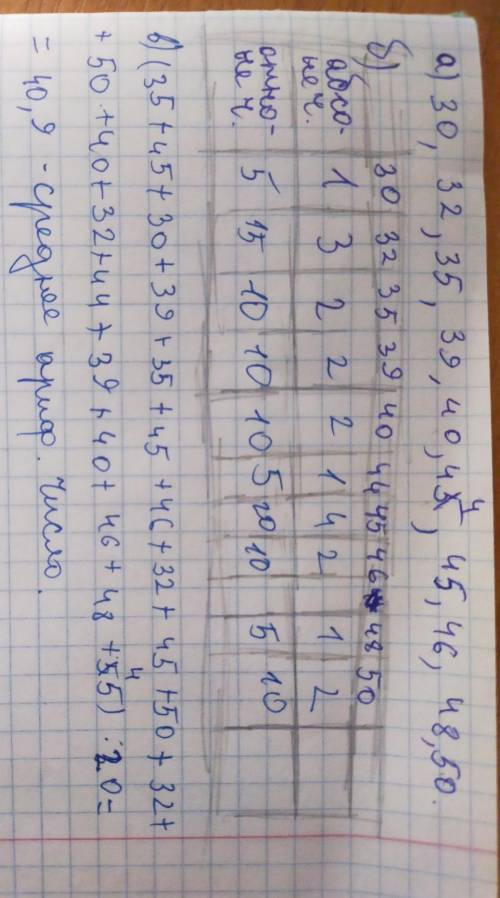 а) 30, 32, 35, 39, 40, 44, 45, 46, 48, 50.
б) 30 32 35 39 40 44 45 46 48 50
абсо-
не ч. 1 3 2 2 2 1 4 2 1 2
отно-
не ч. 5 15 10 10 10 5 20 10 5 10
в) (35 + 45 + 30 + 39 + 35 + 45 + 46 + 32 + 45 + 50 + 32 +
+ 50 + 40 + 32 + 44 + 39 + 40 + 46 + 48 + 45) : 20 =
= 40,9 - среднее ариф. число.